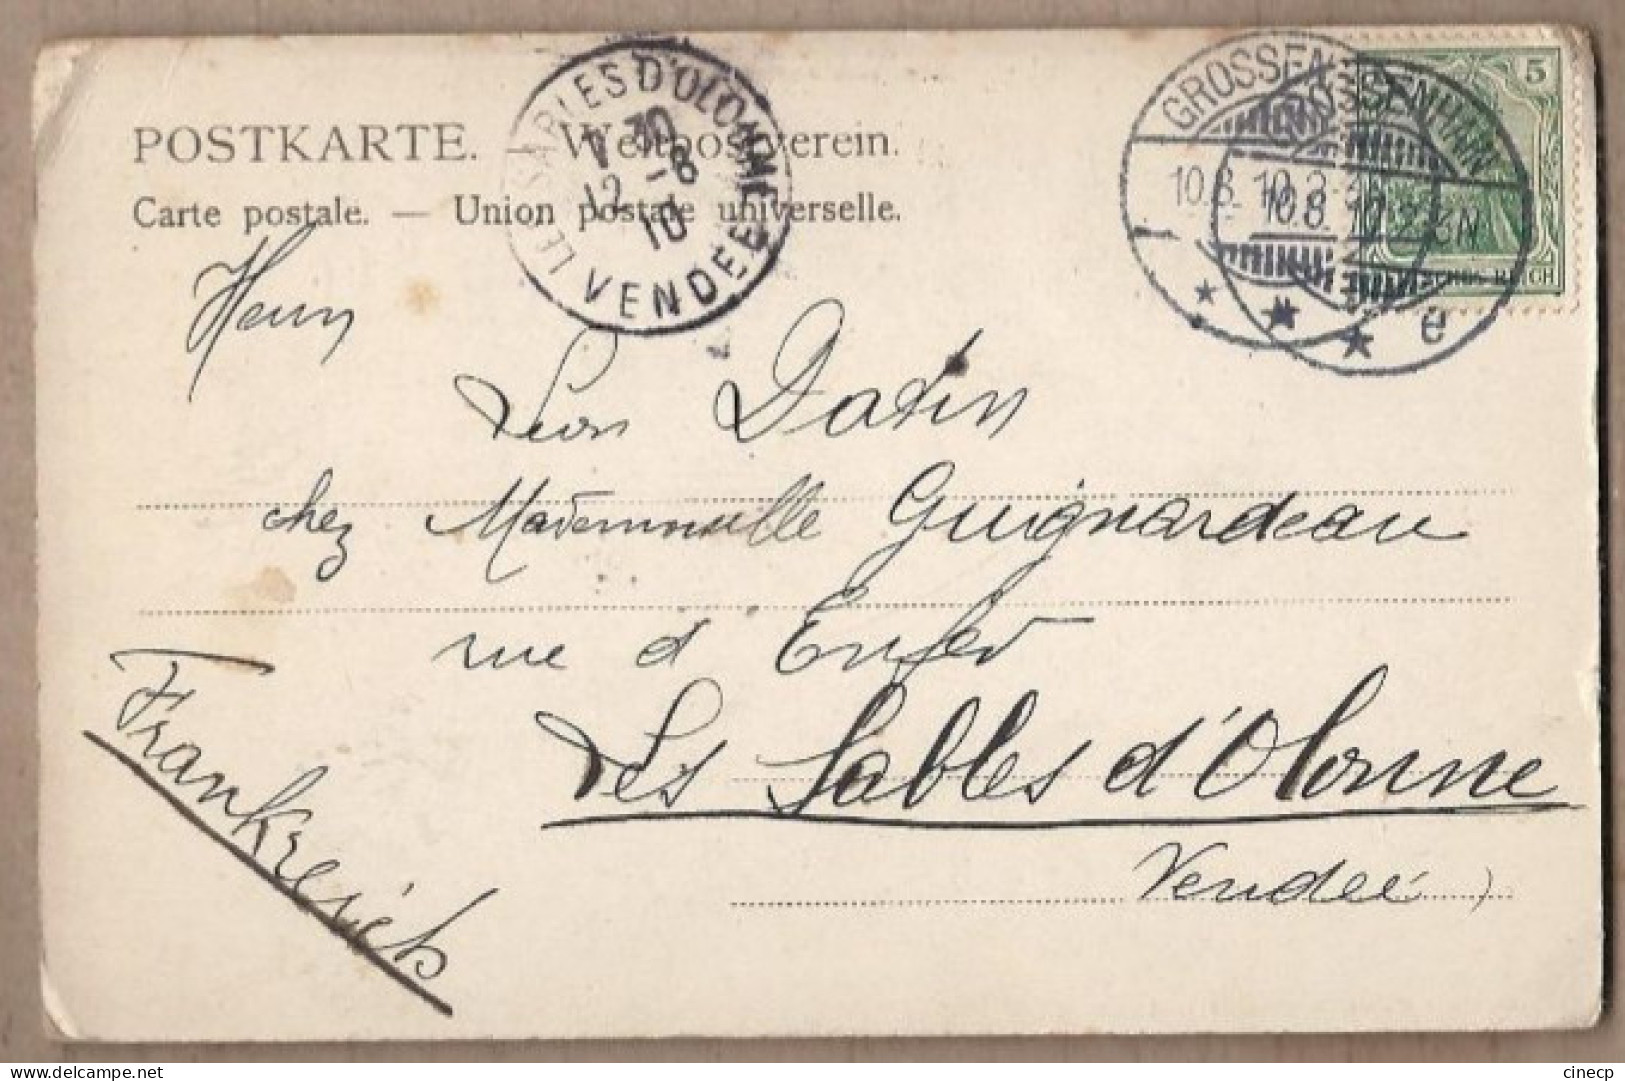 POSTKARTE. — Weltpostverein.
Carte postale. — Union postale universelle.
LES SABLES D'OLONNE
7 30
12 - 8
10
VENDEE
GROSSENHAIN
10.8.10.2-3N
* * e
GROSSENHAIN
10.8.10.2-3N
* * e
5
DEUTSCHES REICH
Herrn
Léon Datin
chez Mademoiselle Guignardeau
rue d'Enfer
Les Sables d'Olonne
Vendée
Frankreich
cinecp